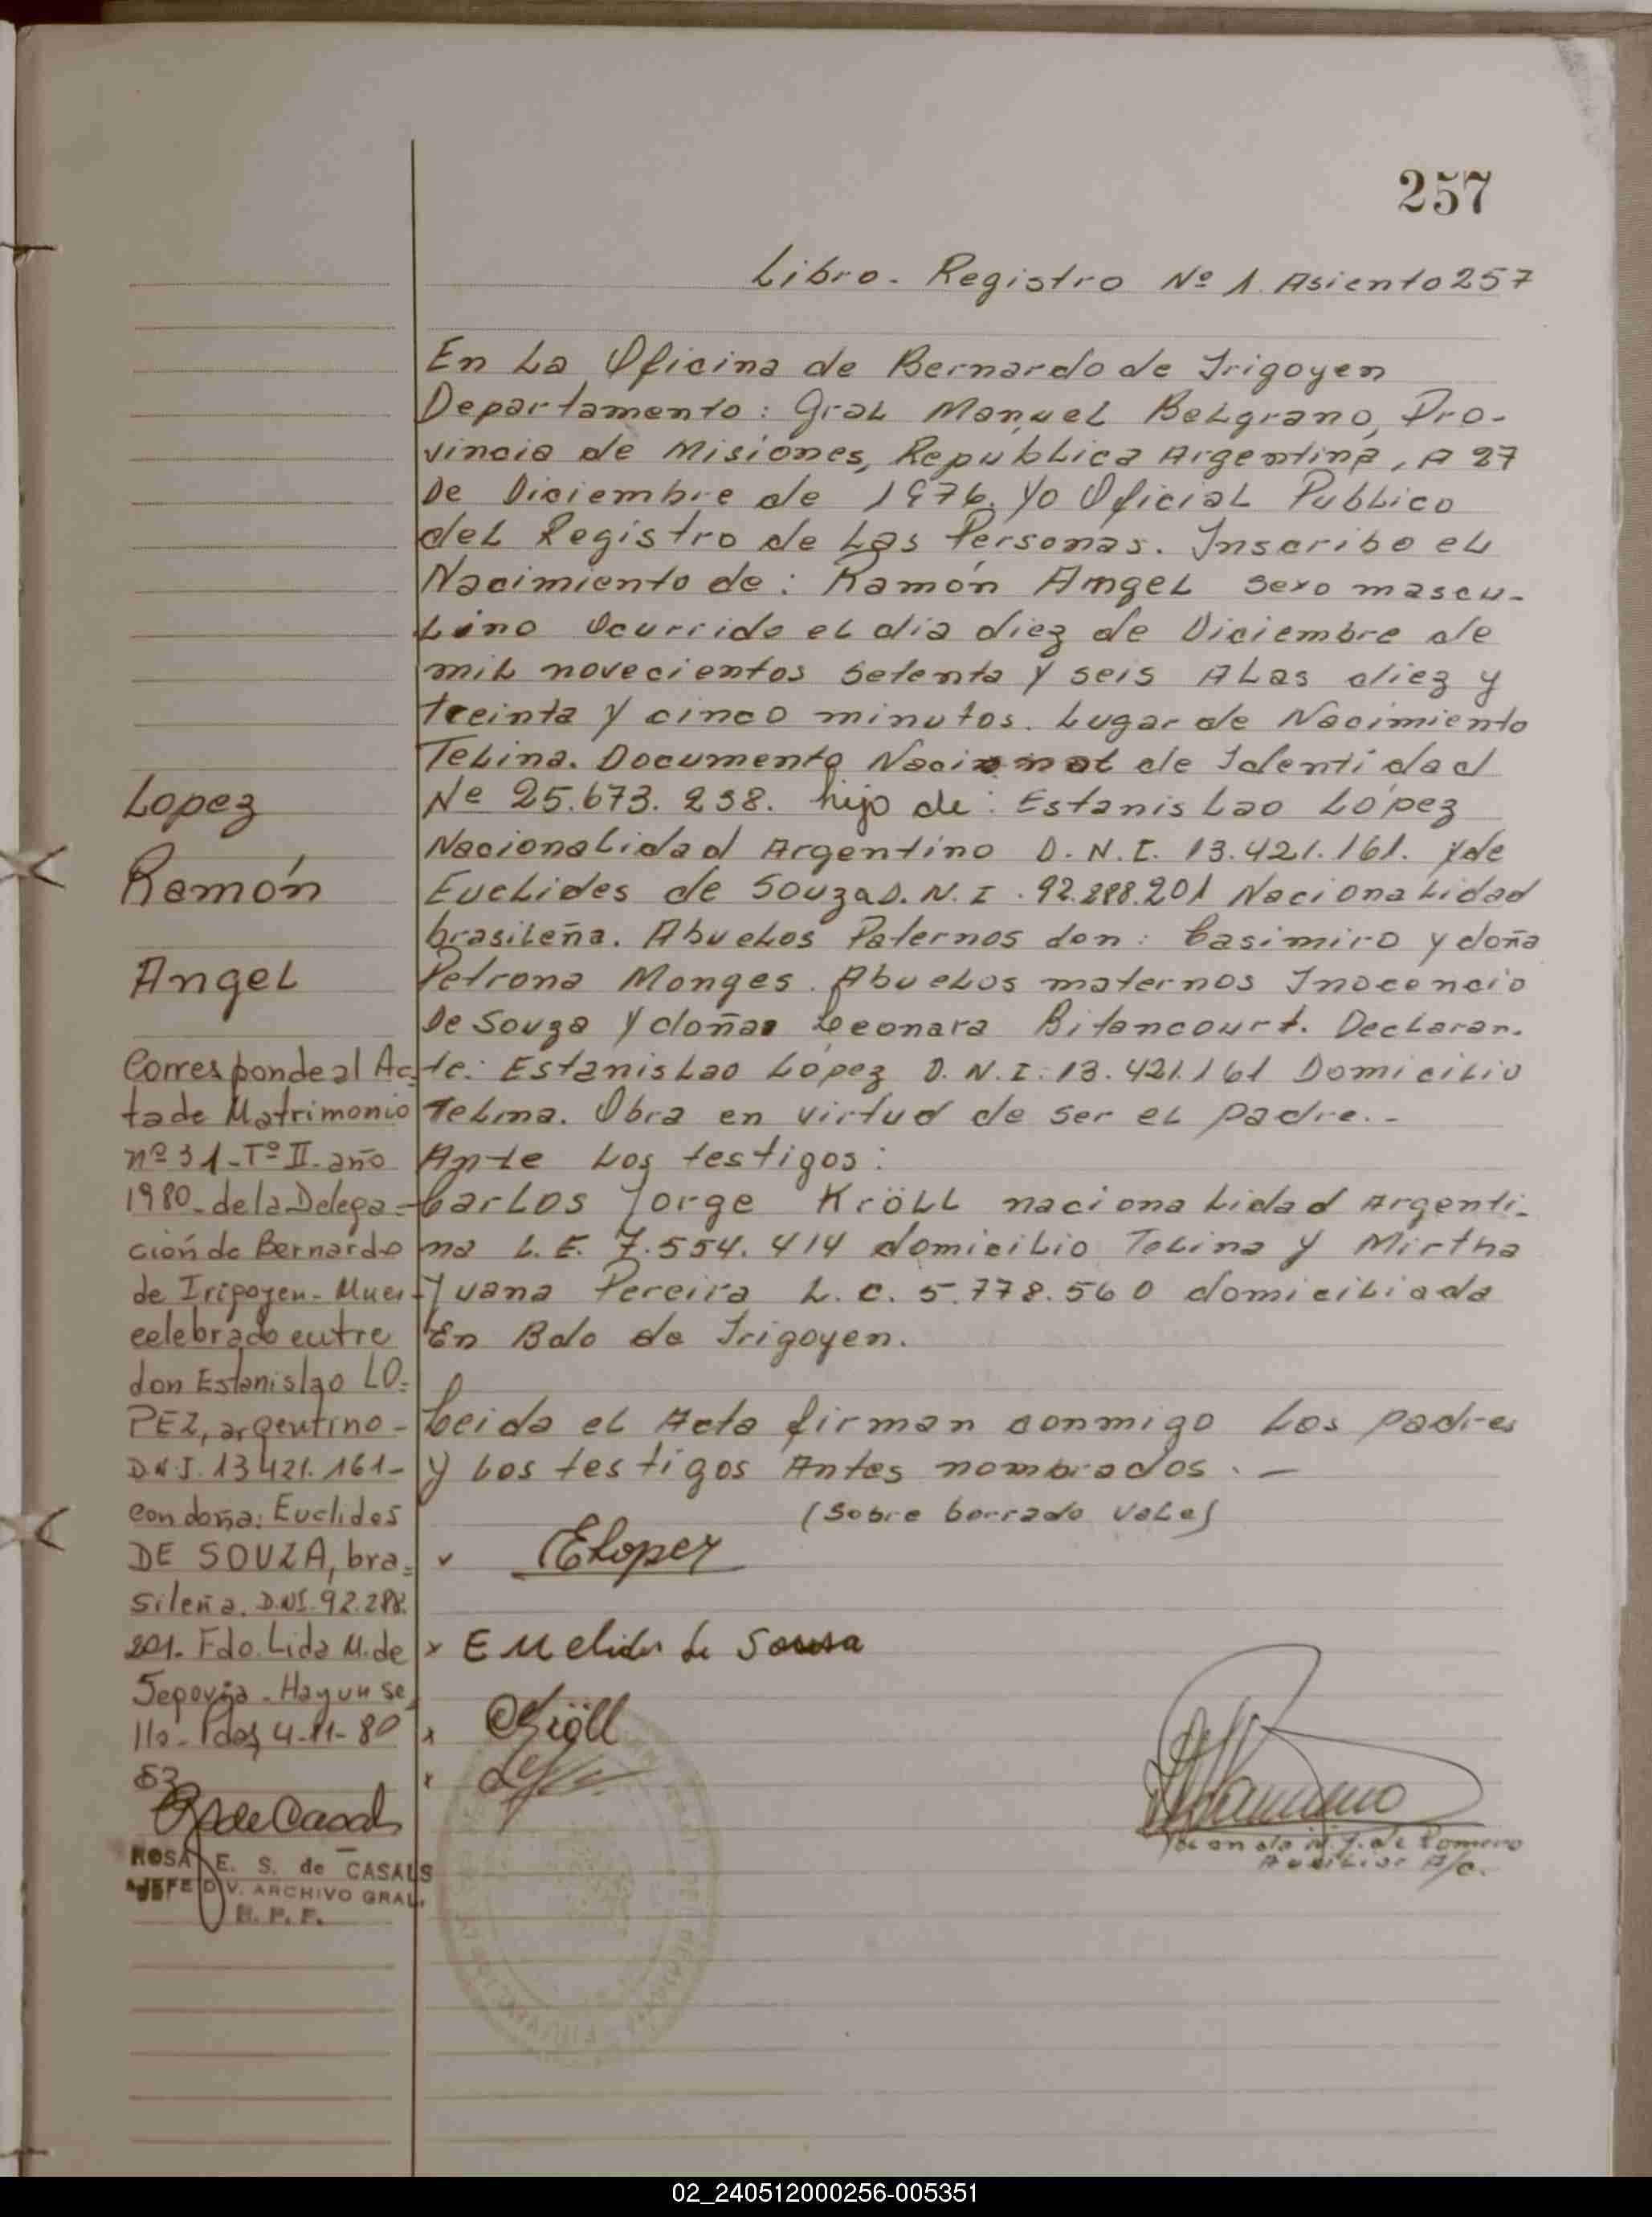 257
Libro - Registro Nº 1. Asiento 257
En La Oficina de Bernardo de Irigoyen
Departamento: Gral Manuel Belgrano, Pro-
vincia de Misiónes, República Argentina, A 27
De Diciembre de 1976. Yo Oficial Publico
del Registro de Las Personas. Inscribo el
Nacimiento de: Ramón Angel sexo mascu-
Lino Ocurrido el dia diez de Diciembre de
mil novecientos setenta y seis A Las diez y
treinta y cinco minutos. Lugar de Nacimiento
Telina. Documento Nacional de Identidad
Nº 25.673.238. hijo de: Estanislao López
Nacionalidad Argentino D.N.I. 13.421.161. y de
Euclides de Souza D.N.I. 92.288.201 Nacionalidad
brasileña. Abuelos Paternos don: Casimiro y doña
Petrona Monges. Abuelos maternos Inocencio
De Souza y doña Leonara Bitancourt. Declaran-
te: Estanislao López D.N.I: 13.421.161 Domicilio
Telina. Obra en virtud de ser el padre.-
Ante Los testigos:
Carlos Jorge Kröll nacionalidad Argenti-
na L.E. 7.554.414 domicilio Telina y Mirtha
Juana Pereira L.C. 5.778.560 domiciliada
En Bdo de Irigoyen.
Leida el Acta firman conmigo Los padres
y Los testigos Antes nombrados. -
(Sobre borrado Vale)
ELopez
x Euclides de Sousa
x CKröll
x
de Romero
Auxiliar A/c.
Lopez
Ramón
Angel
Corresponde al Ac=
ta de Matrimonio
nº 31-Tº II- año
1980- de la Delega=
ción de Bernardo
de Irigoyen- Mnes-
celebrado entre
don Estanislao LO=
PEZ, argentino-
D.N.I. 13.421.161-
con doña: Euclides
DE SOUZA, bra=
sileña. D.NI. 92.288.
201. Fdo. Lida M. de
Segovia - Hay un se
llo- Pdas, 4-11-80
ROSA E. S. de CASALS
JEFE DIV. ARCHIVO GRAL.
R. P. P.
02_240512000256-005351